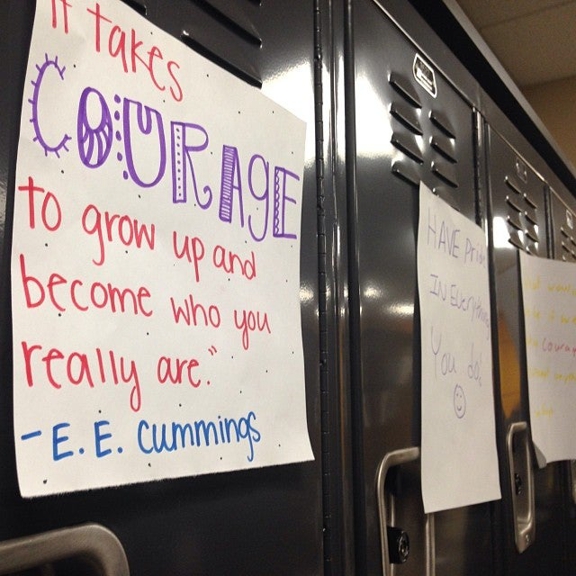 It takes
COURAGE
to grow up and
become who you
really are."
- E. E. Cummings
HAVE Pride
IN Everything
You do!
courage